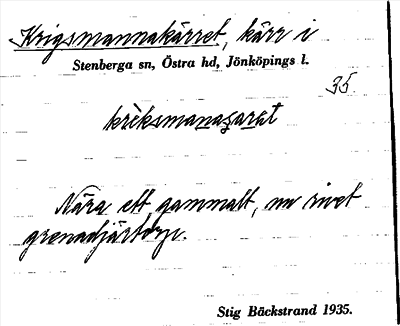 Krigsmannakärret, kärr i
Stenberga sn, Östra hd, Jönköpings l.
35.
Nära ett gammalt, nu rivet
grenadjärtorp.
Stig Bäckstrand 1935.